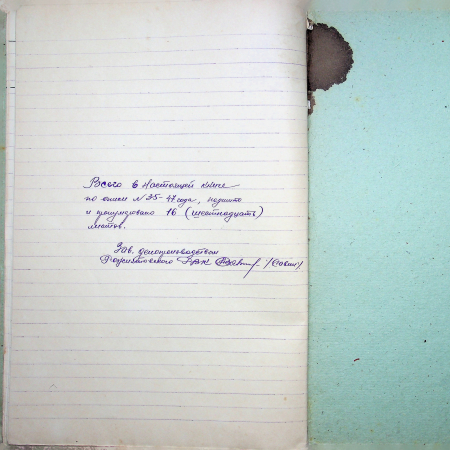 Всего в настоящей книге
по описи № 35-47 года, подшито
и пронумеровано 16 (шестнадцать)
листов.
Зав. делопроизводством
РВК